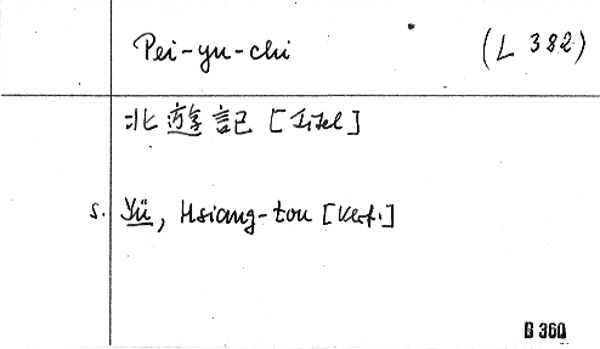 Pei-yu-chi (L 382)
北遊記 [Titel]
s. Yü, Hsiang-tou [Verf.]
B 360